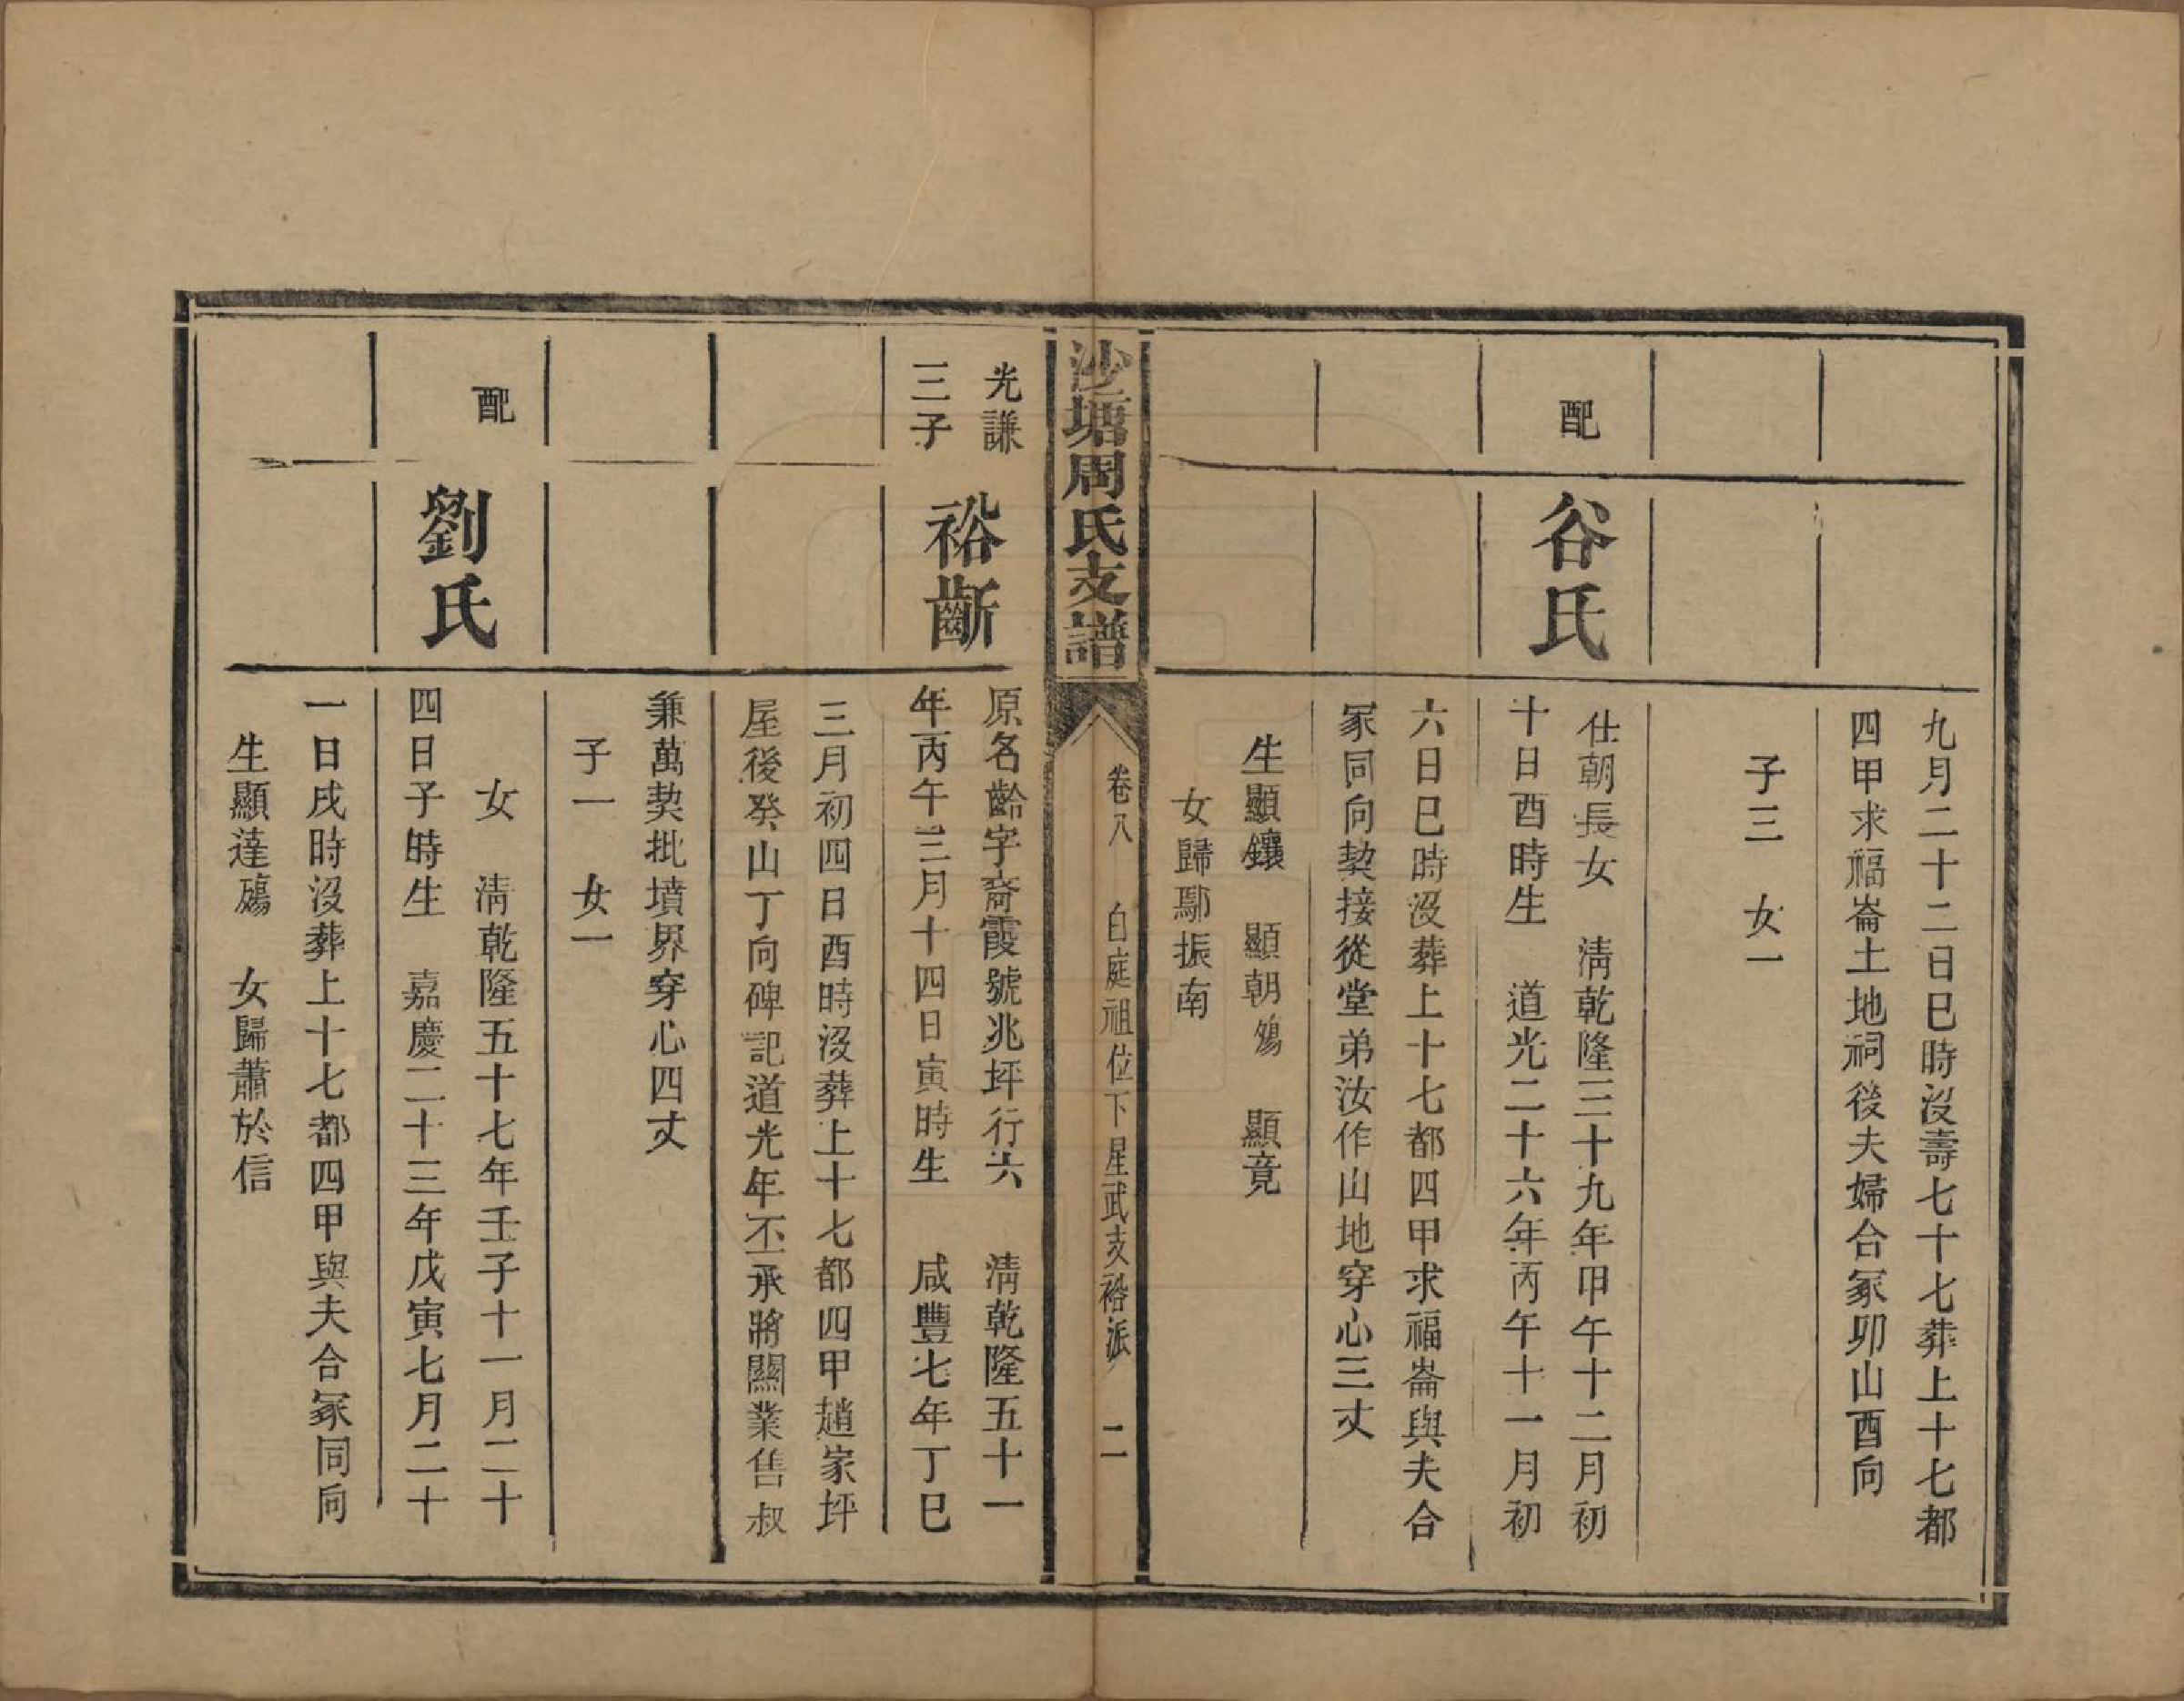 九月二十二日巳時沒壽七十七葬上十七都
四甲求福崙土地祠後夫婦合冢卯山酉向
子三　女一
配
谷氏
仕朝長女　清乾隆三十九年甲午十二月初
十日酉時生　道光二十六年丙午十一月初
六日巳時沒葬上十七都四甲求福崙與夫合
冢同向契接從堂弟汝作山地穿心三丈
生顯鑲　顯朝殤　顯竟
女歸鄢振南
沙塘周氏支譜
卷八　白庭祖位下星武支裕派　二
光謙
三子
裕齗
原名齡字裔霞號兆坪行六　清乾隆五十一
年丙午三月十四日寅時生　咸豐七年丁巳
三月初四日酉時沒葬上十七都四甲趙家坪
屋後癸山丁向碑記道光年丕承將關業售叔
兼萬契批墳界穿心四丈
子一　女一
配
劉氏
女　清乾隆五十七年壬子十一月二十
四日子時生　嘉慶二十三年戊寅七月二十
一日戌時沒葬上十七都四甲與夫合冢同向
生顯達殤　女歸蕭於信